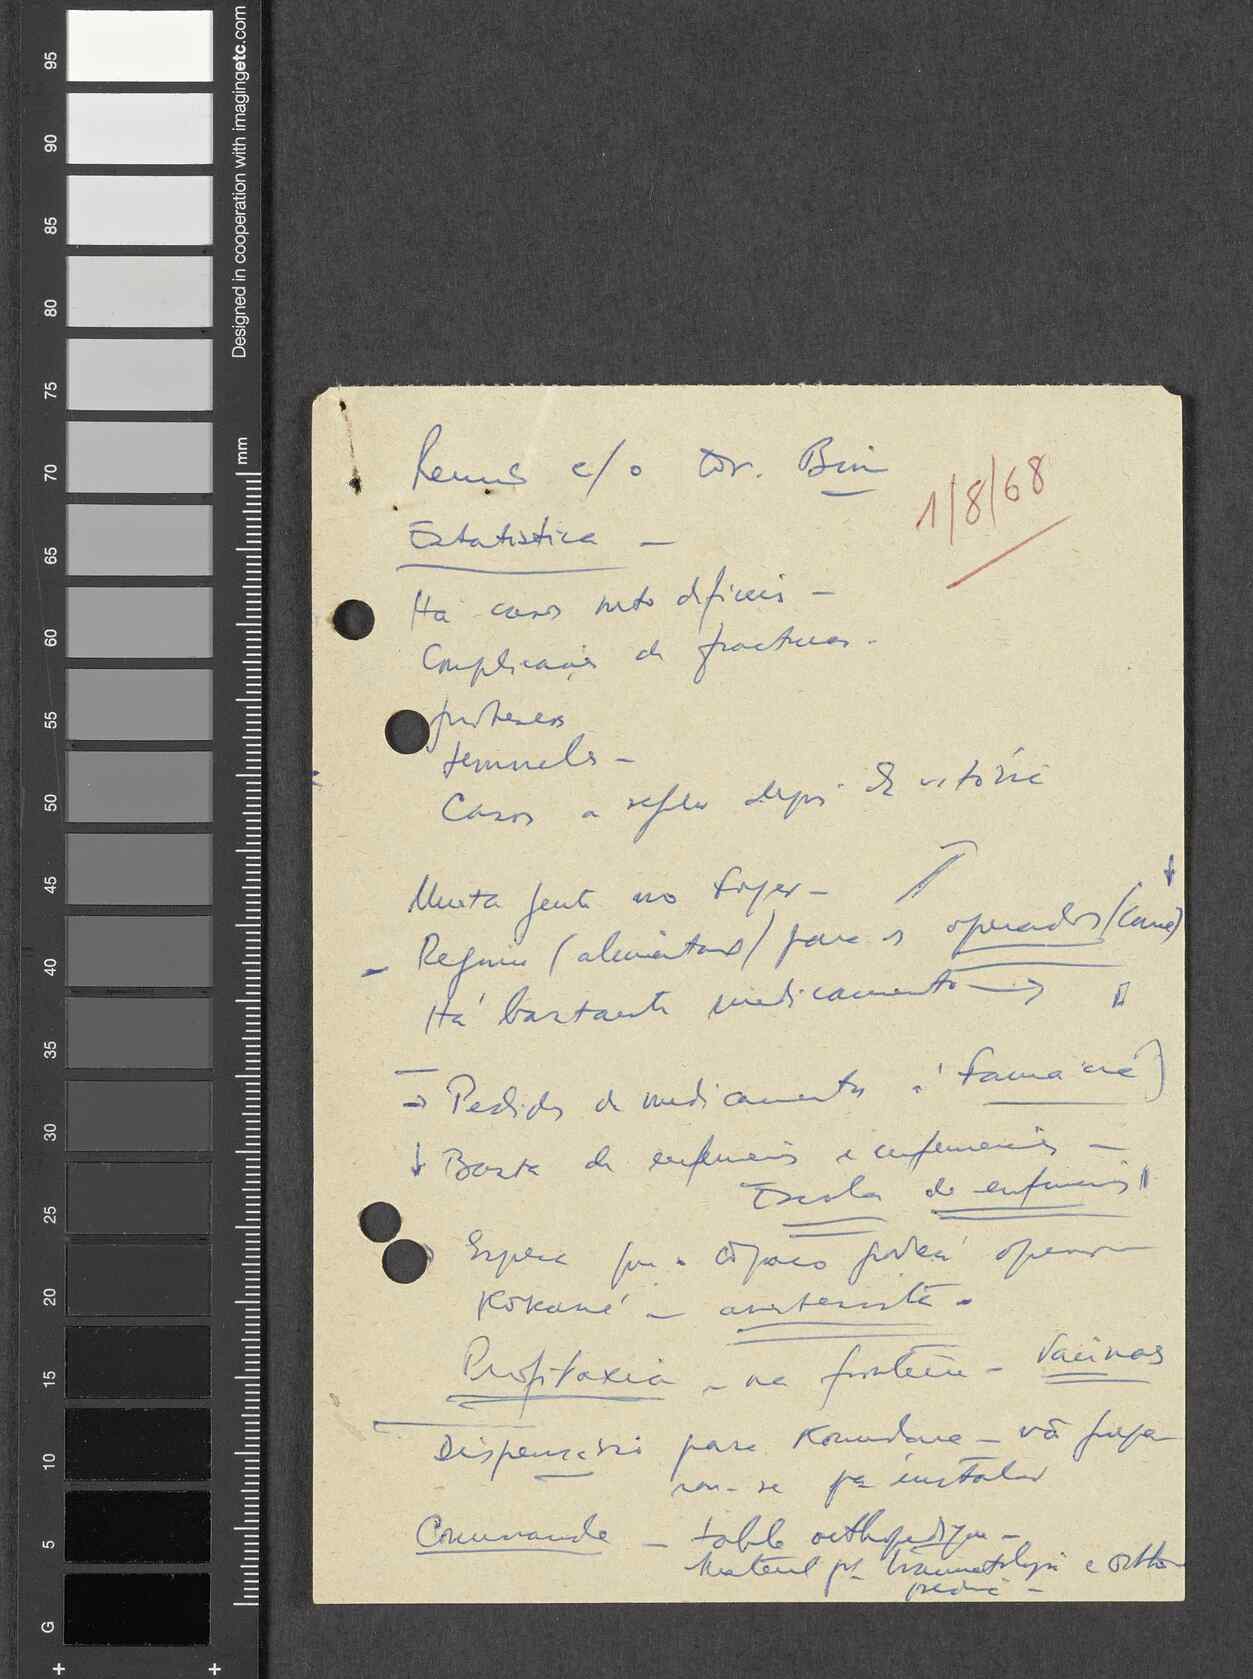 95
90
85
80
75
70
65
60
55
50
45
40
35
30
25
20
15
10
5
G
Designed in cooperation with imagingetc.com
mm
c/o Dr. Bin
1/8/68
Estatistica -
Há casos mto dificeis -
Complicações de fracturas -
proteses
Casos a depois da vitória
Muita gente no foyer -
- Regime (alimentar) para os operados (carne)
Há bastante medicamento →
→ Pedidos de medicamentos à farmácia
↓ Basta de enfermeiros e enfermeiras -
Escola de enfermeiros
Espera que poderá operar
- anestesista -
Profilaxia - na fronteira - Vacinas
Dispensário para Koundara - vão prepa
ram-se pa instalar
Commande - table orthopédique -
Material pa traumatologia e orto
pedia -